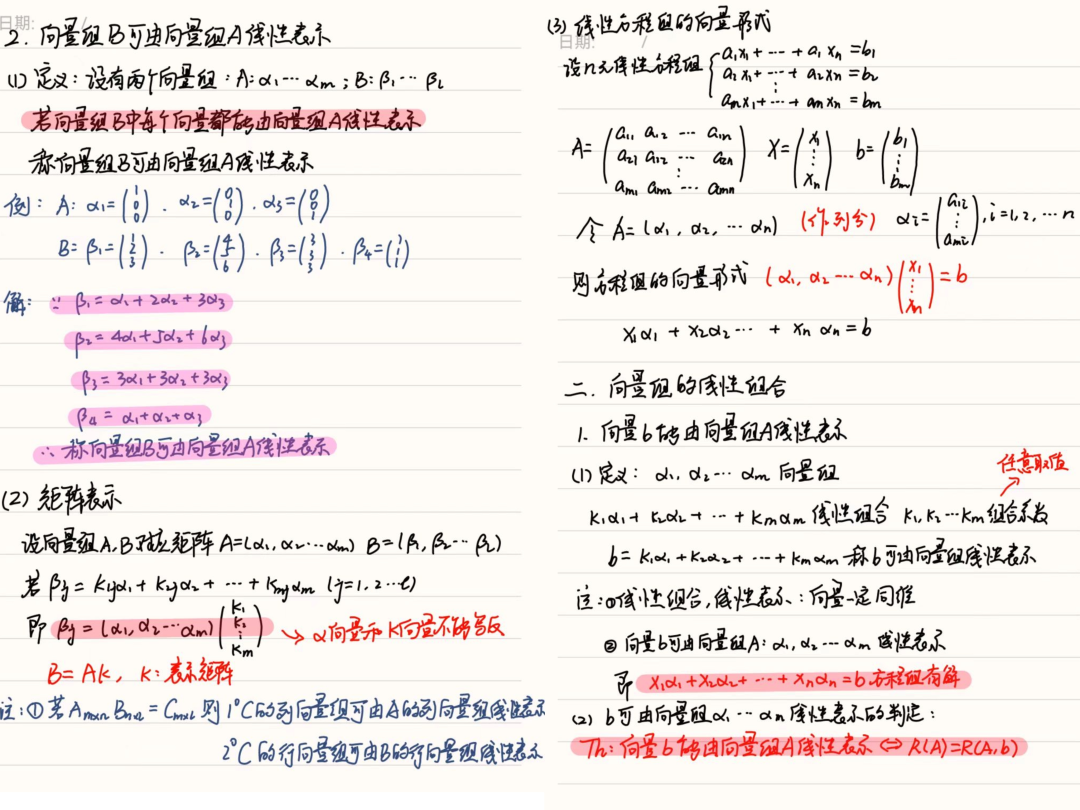 日期: /
2. 向量组B可由向量组A线性表示
(1) 定义: 设有两个向量组: A: α₁ ⋯ αm ; B: β₁ ⋯ βl
若向量组B中每个向量都能由向量组A线性表示
称向量组B可由向量组A线性表示
例: A: α₁=(1 0 0) . α₂=(0 1 0) . α₃=(0 0 1)
B= β₁=(1 2 3) . β₂=(4 5 6) . β₃=(3 3 3) . β₄=(1 1 1)
解: ∵ β₁ = α₁ + 2α₂ + 3α₃
β₂ = 4α₁ + 5α₂ + 6α₃
β₃ = 3α₁ + 3α₂ + 3α₃
β₄ = α₁ + α₂ + α₃
∴ 称向量组B可由向量组A线性表示
(2) 矩阵表示
设向量组A, B对应矩阵 A=(α₁, α₂ ⋯ αm) B=(β₁, β₂ ⋯ βl)
若 βj = k₁jα₁ + k₂jα₂ + ⋯ + kmjαm (j=1, 2 ⋯ l)
即 βj = (α₁, α₂ ⋯ αm)(k₁ k₂ ⋮ km) → α向量和K向量不能写反
B = AK, K: 表示矩阵
注: ① 若 Am×n Bn×l = Cm×l 则 1° C的列向量组可由A的列向量组线性表示
2° C的行向量组可由B的行向量组线性表示
(3) 线性方程组的向量形式
日期: /
设n元线性方程组 { a₁x₁ + ⋯ + a₁xn = b₁
a₂x₁ + ⋯ + a₂xn = b₂
⋮
amx₁ + ⋯ + amxn = bm
A= (a₁₁ a₁₂ ⋯ a₁n
a₂₁ a₂₂ ⋯ a₂n
⋮
am₁ am₂ ⋯ amn) X= (x₁ ⋮ xn) b= (b₁ ⋮ bm)
令 A= (α₁, α₂, ⋯ αn) (作列分) αi= (a₁i ⋮ ami), i=1, 2, ⋯ n
则方程组的向量形式 (α₁, α₂ ⋯ αn)(x₁ ⋮ xn) = b
x₁α₁ + x₂α₂ ⋯ + xnαn = b
二. 向量组的线性组合
1. 向量b能由向量组A线性表示
(1) 定义: α₁, α₂ ⋯ αm 向量组
任意取值
k₁α₁ + k₂α₂ + ⋯ + kmαm 线性组合 k₁, k₂ ⋯ km 组合系数
b = k₁α₁ + k₂α₂ + ⋯ + kmαm 称b可由向量组线性表示
注: ① 线性组合, 线性表示: 向量一定同维
② 向量b可由向量组A: α₁, α₂ ⋯ αm 线性表示
即 x₁α₁ + x₂α₂ + ⋯ + xnαn = b 方程组有解
(2) b可由向量组α₁ ⋯ αn线性表示的判定:
Th: 向量b能由向量组A线性表示 ⇔ R(A)=R(A, b)